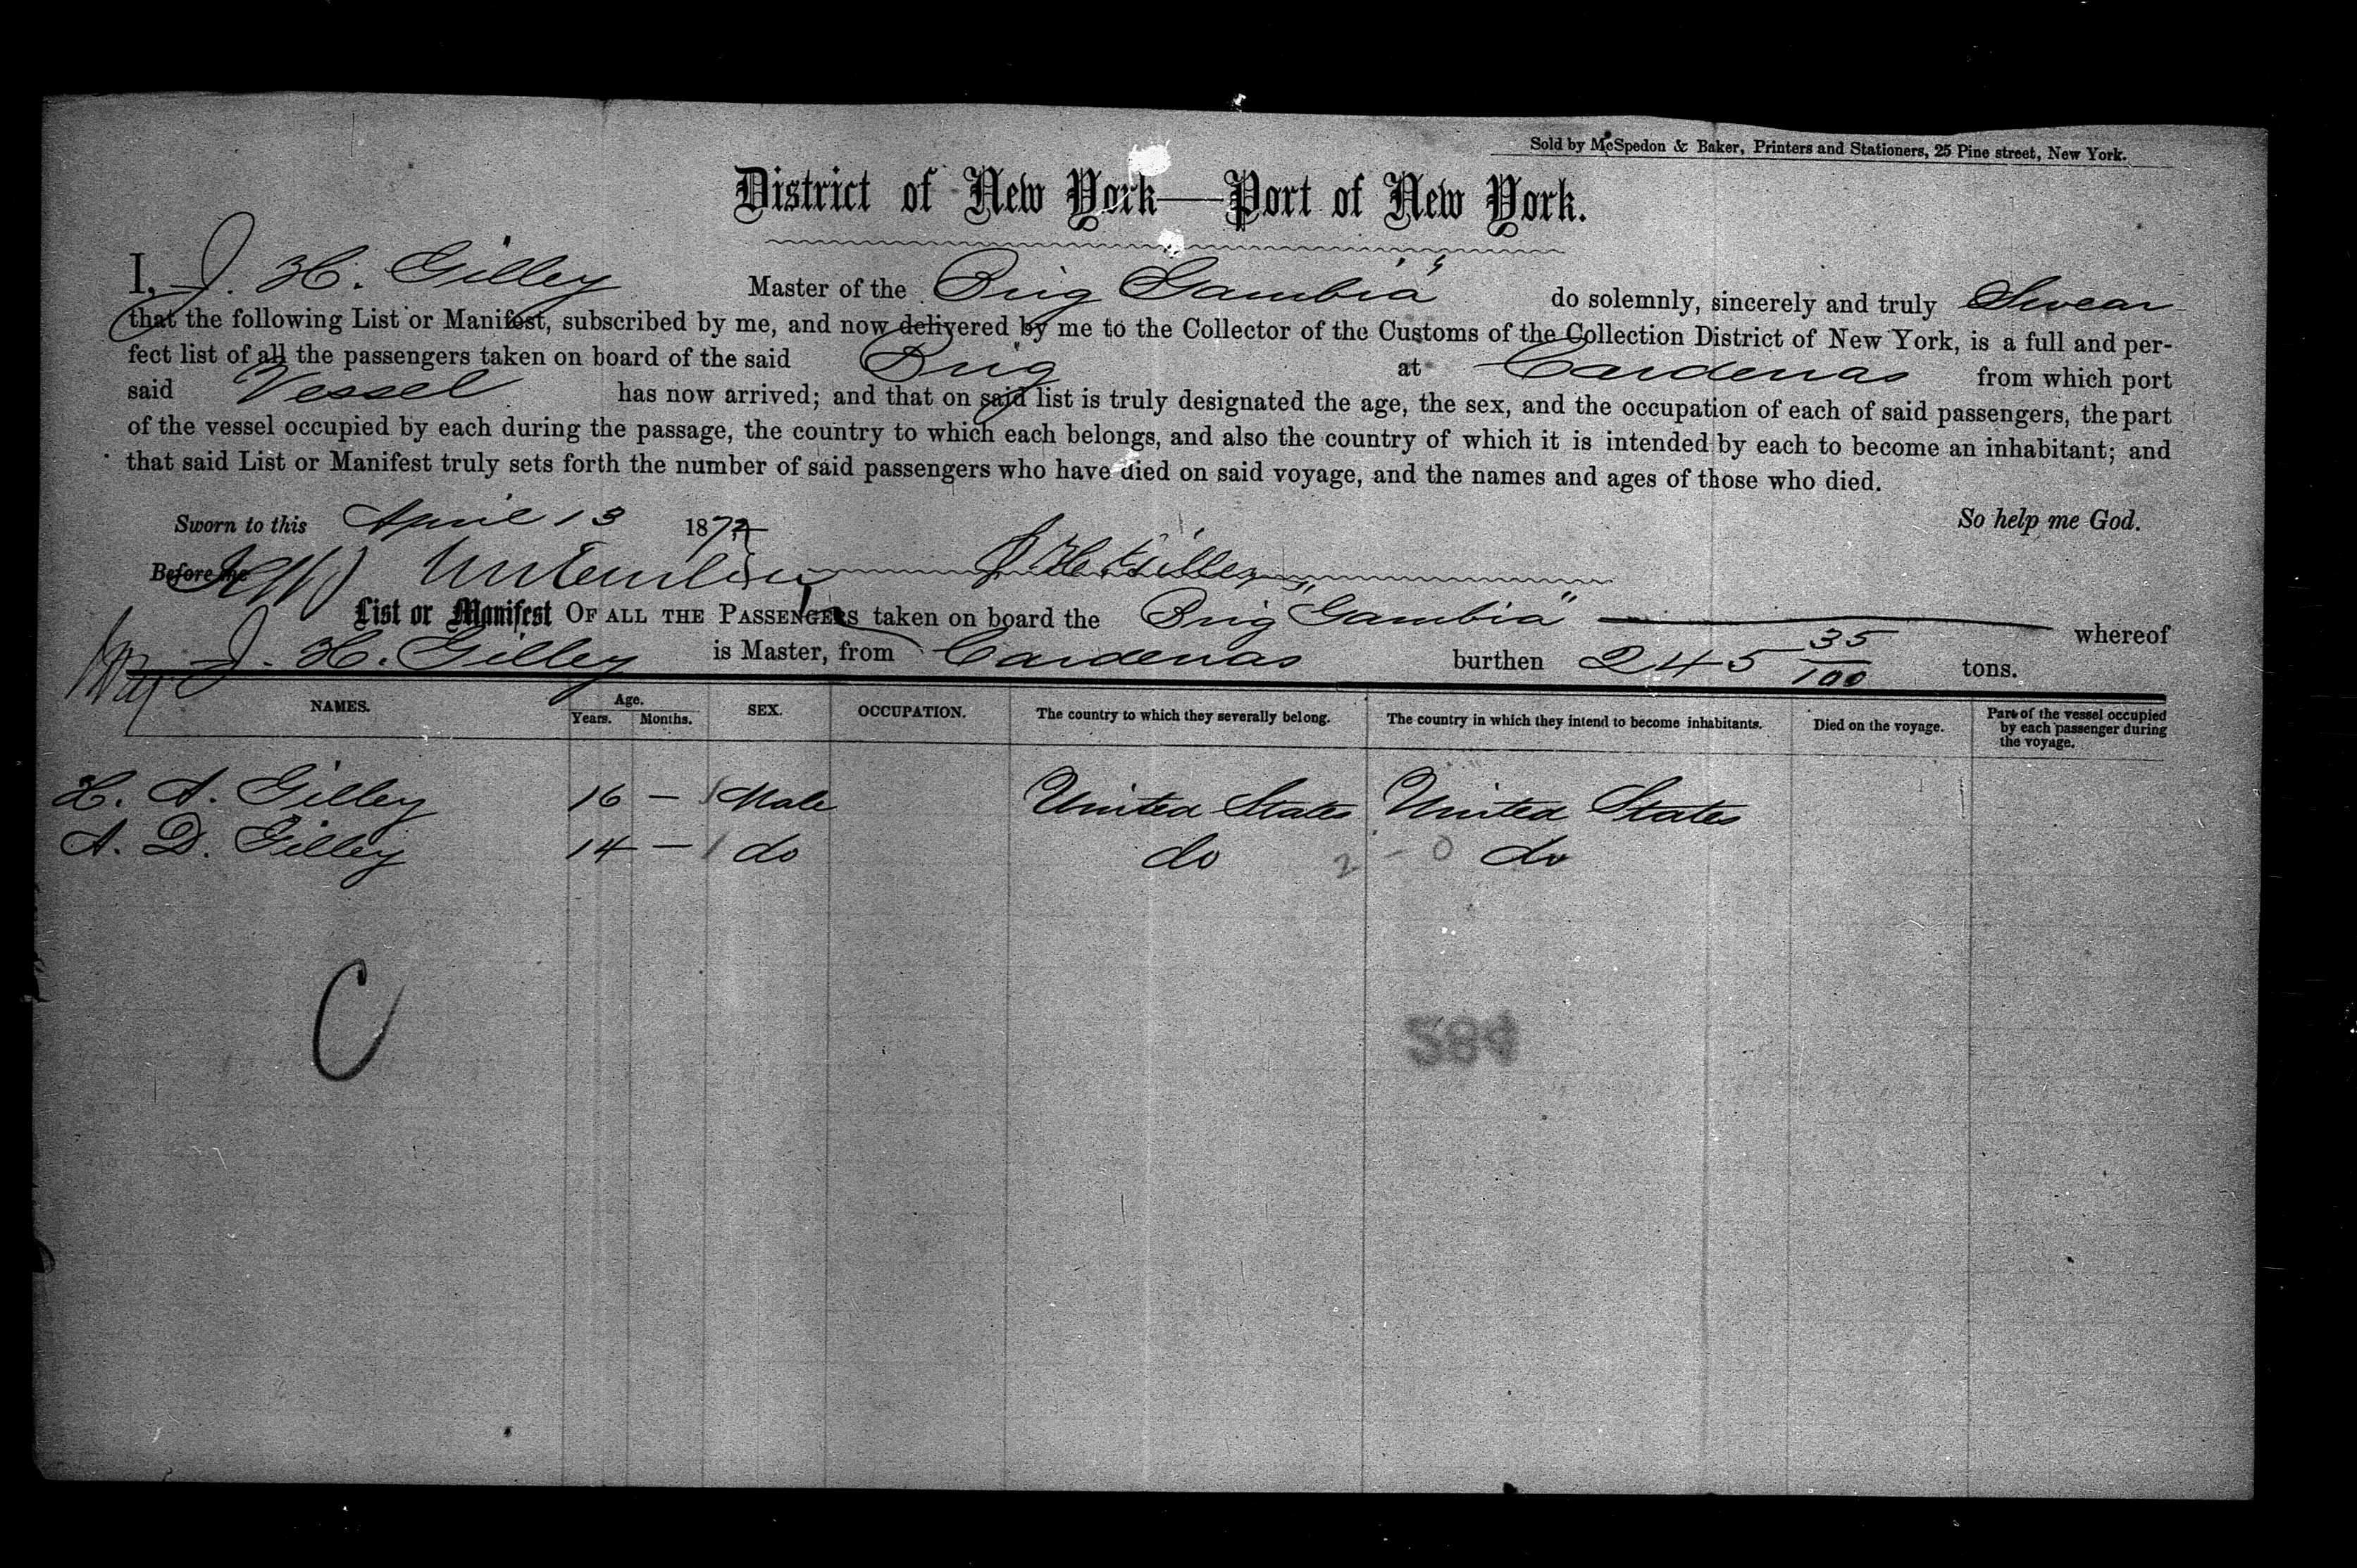 Sold by McSpedon & Baker, Printers and Stationers, 25 Pine street, New York.
District of New York—Port of New York.
I, J. H. Gilley Master of the Brig "Gambia" do solemnly, sincerely and truly Swear
that the following List or Manifest, subscribed by me, and now delivered by me to the Collector of the Customs of the Collection District of New York, is a full and per-
fect list of all the passengers taken on board of the said Brig at Cardenas from which port
said Vessel has now arrived; and that on said list is truly designated the age, the sex, and the occupation of each of said passengers, the part
of the vessel occupied by each during the passage, the country to which each belongs, and also the country of which it is intended by each to become an inhabitant; and
that said List or Manifest truly sets forth the number of said passengers who have died on said voyage, and the names and ages of those who died.
So help me God.
Sworn to this April 13 1872
Before me J H Gilley
List or Manifest OF ALL THE PASSENGERS taken on board the Brig "Gambia" whereof
J. H. Gilley is Master, from Cardenas burthen 245 35/100 tons.
NAMES. Age. Years. Months. SEX. OCCUPATION. The country to which they severally belong. The country in which they intend to become inhabitants. Died on the voyage. Part of the vessel occupied by each passenger during the voyage.
H. A. Gilley 16 — Male United States United States
A. D. Gilley 14 — do do 2 - 0 do
C
584